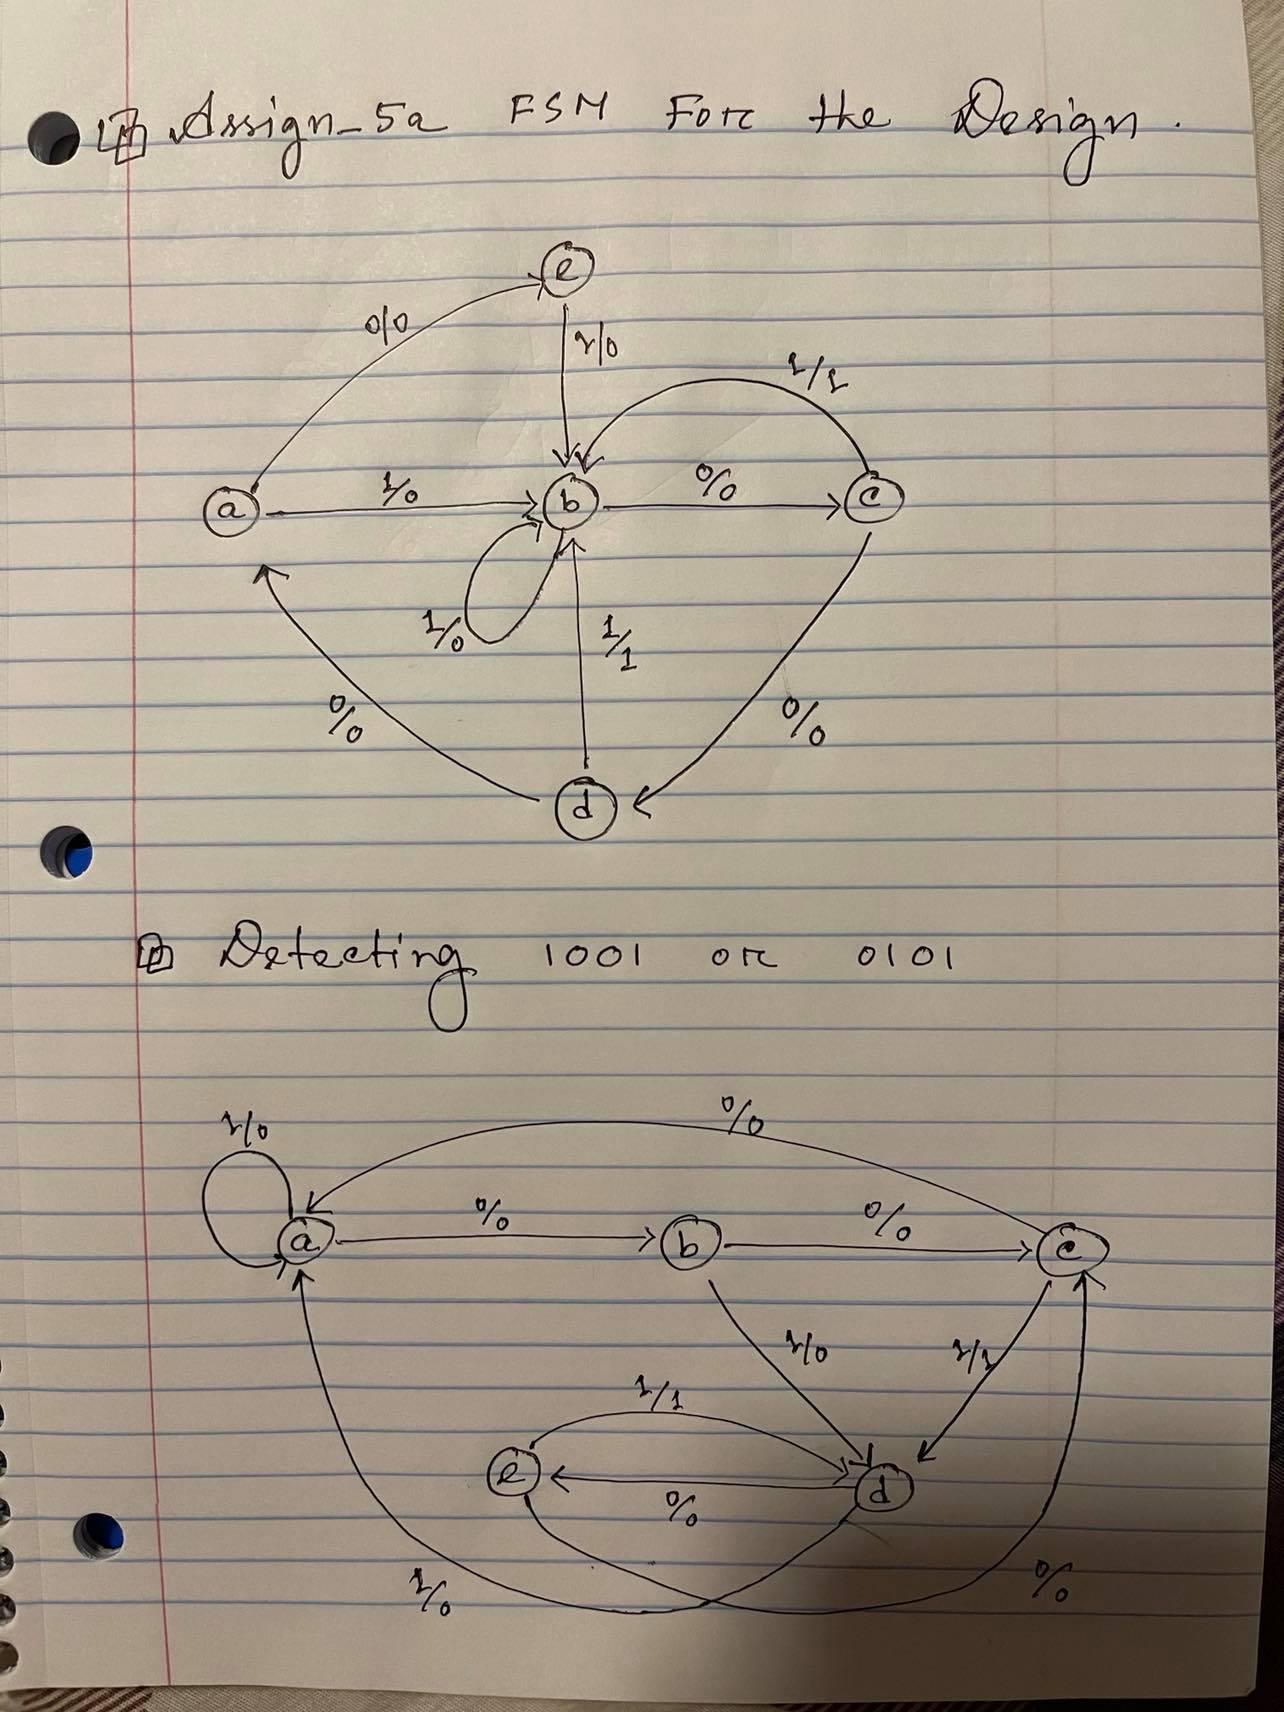 Assign_5a FSM For the Design.
e
0/0
1/0
1/1
a
1/0
b
0/0
c
1/0
1/1
0/0
0/0
d
Detecting 1001 or 0101
0/0
1/0
a
0/0
b
0/0
c
1/0
1/1
1/1
e
0/0
d
1/0
0/0